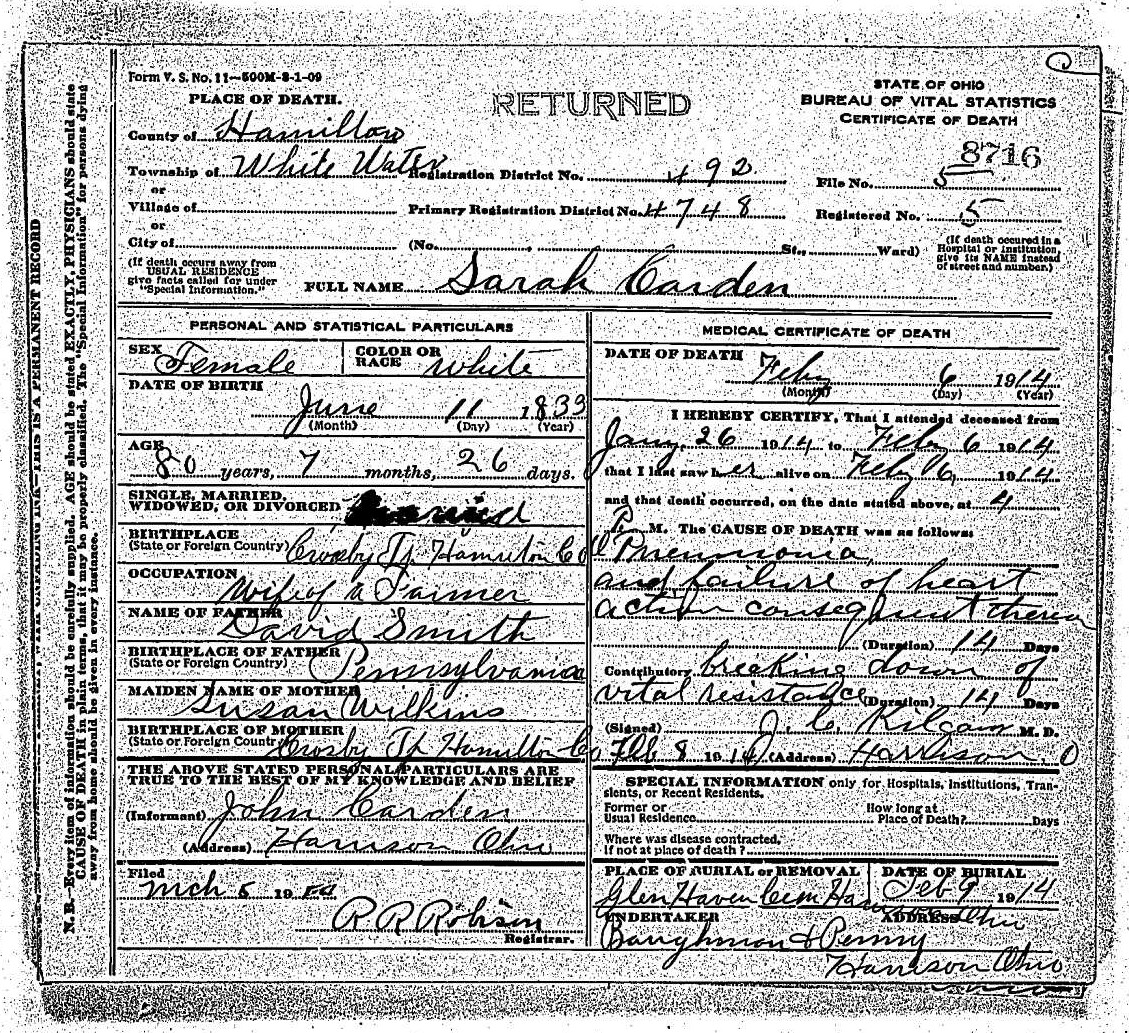 Form V. S. No. 11—500M-8-1-09
PLACE OF DEATH.
RETURNED
STATE OF OHIO
BUREAU OF VITAL STATISTICS
CERTIFICATE OF DEATH
County of Hamilton
8716
Township of White Water Registration District No. 492 File No. 5
or
Village of Primary Registration District No. 4748 Registered No. 5
or
City of (No. , St., Ward)
(If death occured in a Hospital or Institution, give its NAME instead of street and number.)
(If death occurs away from USUAL RESIDENCE give facts called for under "Special Information.")
FULL NAME Sarah Carden
PERSONAL AND STATISTICAL PARTICULARS
SEX Female COLOR OR RACE White
DATE OF BIRTH
June 11 1833
(Month) (Day) (Year)
AGE
80 years, 7 months, 26 days.
SINGLE, MARRIED, WIDOWED, OR DIVORCED Married
BIRTHPLACE
(State or Foreign Country) Crosby Tp. Hamilton Co
OCCUPATION
Wife of a Farmer
NAME OF FATHER
David Smith
BIRTHPLACE OF FATHER
(State or Foreign Country) Pennsylvania
MAIDEN NAME OF MOTHER
Susan Wilkins
BIRTHPLACE OF MOTHER
(State or Foreign Country) Crosby Tp Hamilton Co
THE ABOVE STATED PERSONAL PARTICULARS ARE
TRUE TO THE BEST OF MY KNOWLEDGE AND BELIEF
(Informant) John Carden
(Address) Harrison Ohio
Filed
Mch 5 19
R. R. Robison
Registrar.
MEDICAL CERTIFICATE OF DEATH
DATE OF DEATH
Feby 6 1914
(Month) (Day) (Year)
I HEREBY CERTIFY, That I attended deceased from
Jany 26 1914 to Feby 6 1914
that I last saw her alive on Feby 6, 1914
and that death occurred, on the date stated above, at 4
P. M. The CAUSE OF DEATH was as follows:
Pneumonia,
and failure of heart
action consequent thereon
(Duration) 14 Days
Contributory breaking down of
vital resistance (Duration) 14 Days
(Signed) J. C. Kilgour M. D.
Feb 8 191 (Address) Harrison, O
SPECIAL INFORMATION only for Hospitals, Institutions, Tran-
sients, or Recent Residents.
Former or Usual Residence How long at Place of Death? Days
Where was disease contracted,
If not at place of death?
PLACE OF BURIAL or REMOVAL DATE OF BURIAL
Glen Haven Cem Harrison Ohio Feb 9 1914
UNDERTAKER ADDRESS
Baughman & Penny
Harrison Ohio
N. B.—Every item of information should be carefully supplied. AGE should be stated EXACTLY, PHYSICIANS should state
CAUSE OF DEATH in plain terms, that it may be properly classified. The "Special Information" for persons dying
away from home should be given in every instance.
UNFADING INK—THIS IS A PERMANENT RECORD